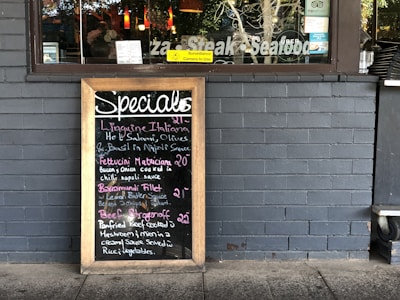 za · Steak · Seafood
Specials
21-
Linguine Italiana
Hot Salami, Olives
& Basil in Napoli Sauce
Fettucini Matriciana 20-
Bacon, Onion cooked in
chilli napoli sauce
Barramundi Fillet 21-
Lemon Butter Sauce
Beef Stroganoff 22-
Panfried Beef cooked in
Mushroom & onion in a
creamy Sauce Served in
Rice & Vegetables.